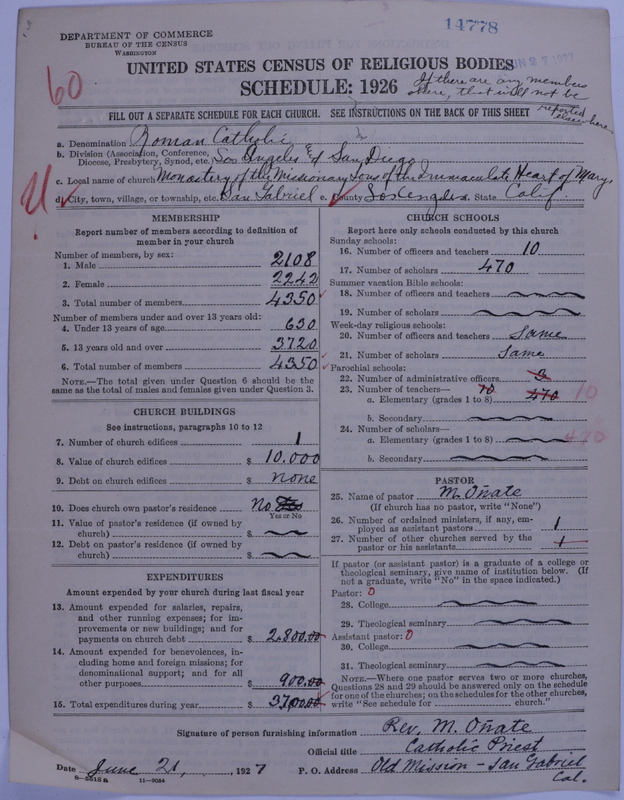 14778
DEPARTMENT OF COMMERCE
BUREAU OF THE CENSUS
WASHINGTON
UNITED STATES CENSUS OF RELIGIOUS BODIES
SCHEDULE: 1926
If there are any members
there, that will not be
reported
elsewhere
60
FILL OUT A SEPARATE SCHEDULE FOR EACH CHURCH. SEE INSTRUCTIONS ON THE BACK OF THIS SHEET
a. Denomination Roman Catholic
b. Division (Association, Conference, Diocese, Presbytery, Synod, etc. Los Angeles & San Diego
c. Local name of church Monastery of the Missionary Sons of the Immaculate Heart of Mary
d. City, town, village, or township, etc. San Gabriel e. County Los Angeles State Calif
MEMBERSHIP
Report number of members according to definition of
member in your church
Number of members, by sex:
1. Male 2108
2. Female 2242
3. Total number of members 4350
Number of members under and over 13 years old:
4. Under 13 years of age 630
5. 13 years old and over 3720
6. Total number of members 4350
NOTE.—The total given under Question 6 should be
same as the total of males and females given under Question 3.
CHURCH BUILDINGS
See instructions, paragraphs 10 to 12
7. Number of church edifices 1
8. Value of church edifices $ 10.000
9. Debt on church edifices $ none
10. Does church own pastor's residence No
Yes or No
11. Value of pastor's residence (if owned by
church) $
12. Debt on pastor's residence (if owned by
church) $
EXPENDITURES
Amount expended by your church during last fiscal year
13. Amount expended for salaries, repairs,
and other running expenses; for im-
provements or new buildings; and for
payments on church debt $ 2.800.00
14. Amount expended for benevolences, in-
cluding home and foreign missions; for
denominational support; and for all
other purposes $ 900.00
15. Total expenditures during year $ 3700.00
CHURCH SCHOOLS
Report here only schools conducted by this church
Sunday schools:
16. Number of officers and teachers 10
17. Number of scholars 470
Summer vacation Bible schools:
18. Number of officers and teachers
19. Number of scholars
Week-day religious schools:
20. Number of officers and teachers Same
21. Number of scholars Same
Parochial schools:
22. Number of administrative officers 3
23. Number of teachers—
a. Elementary (grades 1 to 8) 10 470 10
b. Secondary
24. Number of scholars—
a. Elementary (grades 1 to 8) 470
b. Secondary
PASTOR
25. Name of pastor M. Oñate
(If church has no pastor, write "None")
26. Number of ordained ministers, if any, em-
ployed as assistant pastors 1
27. Number of other churches served by the
pastor or his assistants 1
If pastor (or assistant pastor) is a graduate of a college or
theological seminary, give name of institution below. (If
not a graduate, write "No" in the space indicated.)
Pastor: 0
28. College
29. Theological seminary
Assistant pastor: 0
30. College
31. Theological seminary
NOTE.—Where one pastor serves two or more churches,
Questions 28 and 29 should be answered only on the schedule
for one of the churches; on the schedules for the other churches,
write "See schedule for church."
Signature of person furnishing information Rev. M. Oñate
Official title Catholic Priest
Date June 21, 1927 P. O. Address Old Mission - San Gabriel
Cal.
8-5518a 11-9054